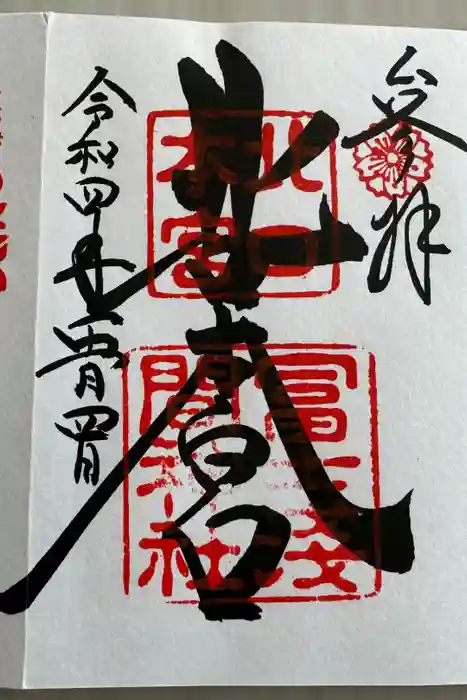 参拝
北口本宮
北口
本宮
冨士浅
間神社
令和四年五月四日